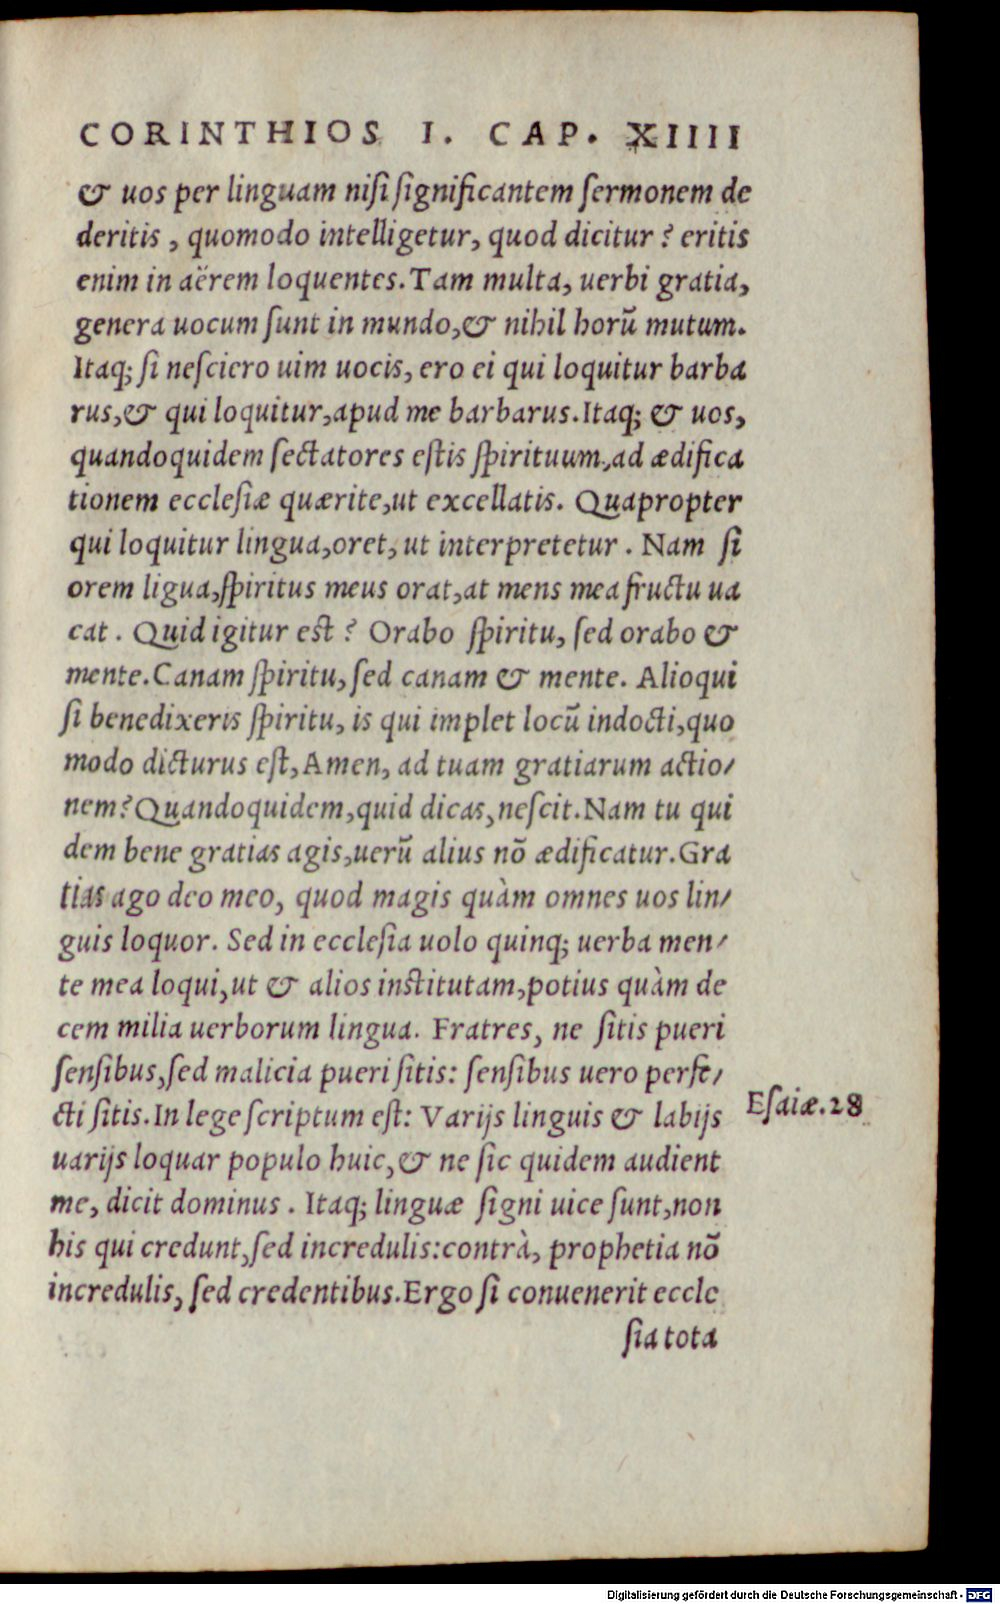 CORINTHIOS I. CAP. XIIII
& uos per linguam niſi ſignificantem ſermonem de
deritis , quomodo intelligetur, quod dicitur ? eritis
enim in aërem loquentes. Tam multa, uerbi gratia,
genera uocum ſunt in mundo,& nihil horũ mutum.
Itaq; ſi neſciero uim uocis, ero ei qui loquitur barba
rus,& qui loquitur,apud me barbarus. Itaq; & uos,
quandoquidem ſectatores eſtis ſpirituum,ad ædifica
tionem eccleſiæ quærite,ut excellatis. Quapropter
qui loquitur lingua,oret, ut interpretetur . Nam ſi
orem ligua,ſpiritus meus orat,at mens mea fructu ua
cat . Quid igitur eſt ? Orabo ſpiritu, ſed orabo &
mente. Canam ſpiritu, ſed canam & mente. Alioqui
ſi benedixeris ſpiritu, is qui implet locũ indocti,quo
modo dicturus eſt, Amen, ad tuam gratiarum actio⸗
nem? Quandoquidem,quid dicas,neſcit. Nam tu qui
dem bene gratias agis,uerũ alius nõ ædificatur. Gra
tias ago deo meo, quod magis quàm omnes uos lin⸗
guis loquor. Sed in eccleſia uolo quinq; uerba men⸗
te mea loqui,ut & alios inſtitutam,potius quàm de
cem milia uerborum lingua. Fratres, ne ſitis pueri
ſenſibus,ſed malicia pueri ſitis: ſenſibus uero perfe⸗
cti ſitis. In lege ſcriptum eſt: Varijs linguis & labijs
uarijs loquar populo huic,& ne ſic quidem audient
me, dicit dominus . Itaq; linguæ ſigni uice ſunt,non
his qui credunt,ſed incredulis:contrà, prophetia nõ
incredulis, ſed credentibus. Ergo ſi conuenerit eccle
ſia tota
Eſaiæ. 28
Digitalisierung gefördert durch die Deutsche Forschungsgemeinschaft - DFG